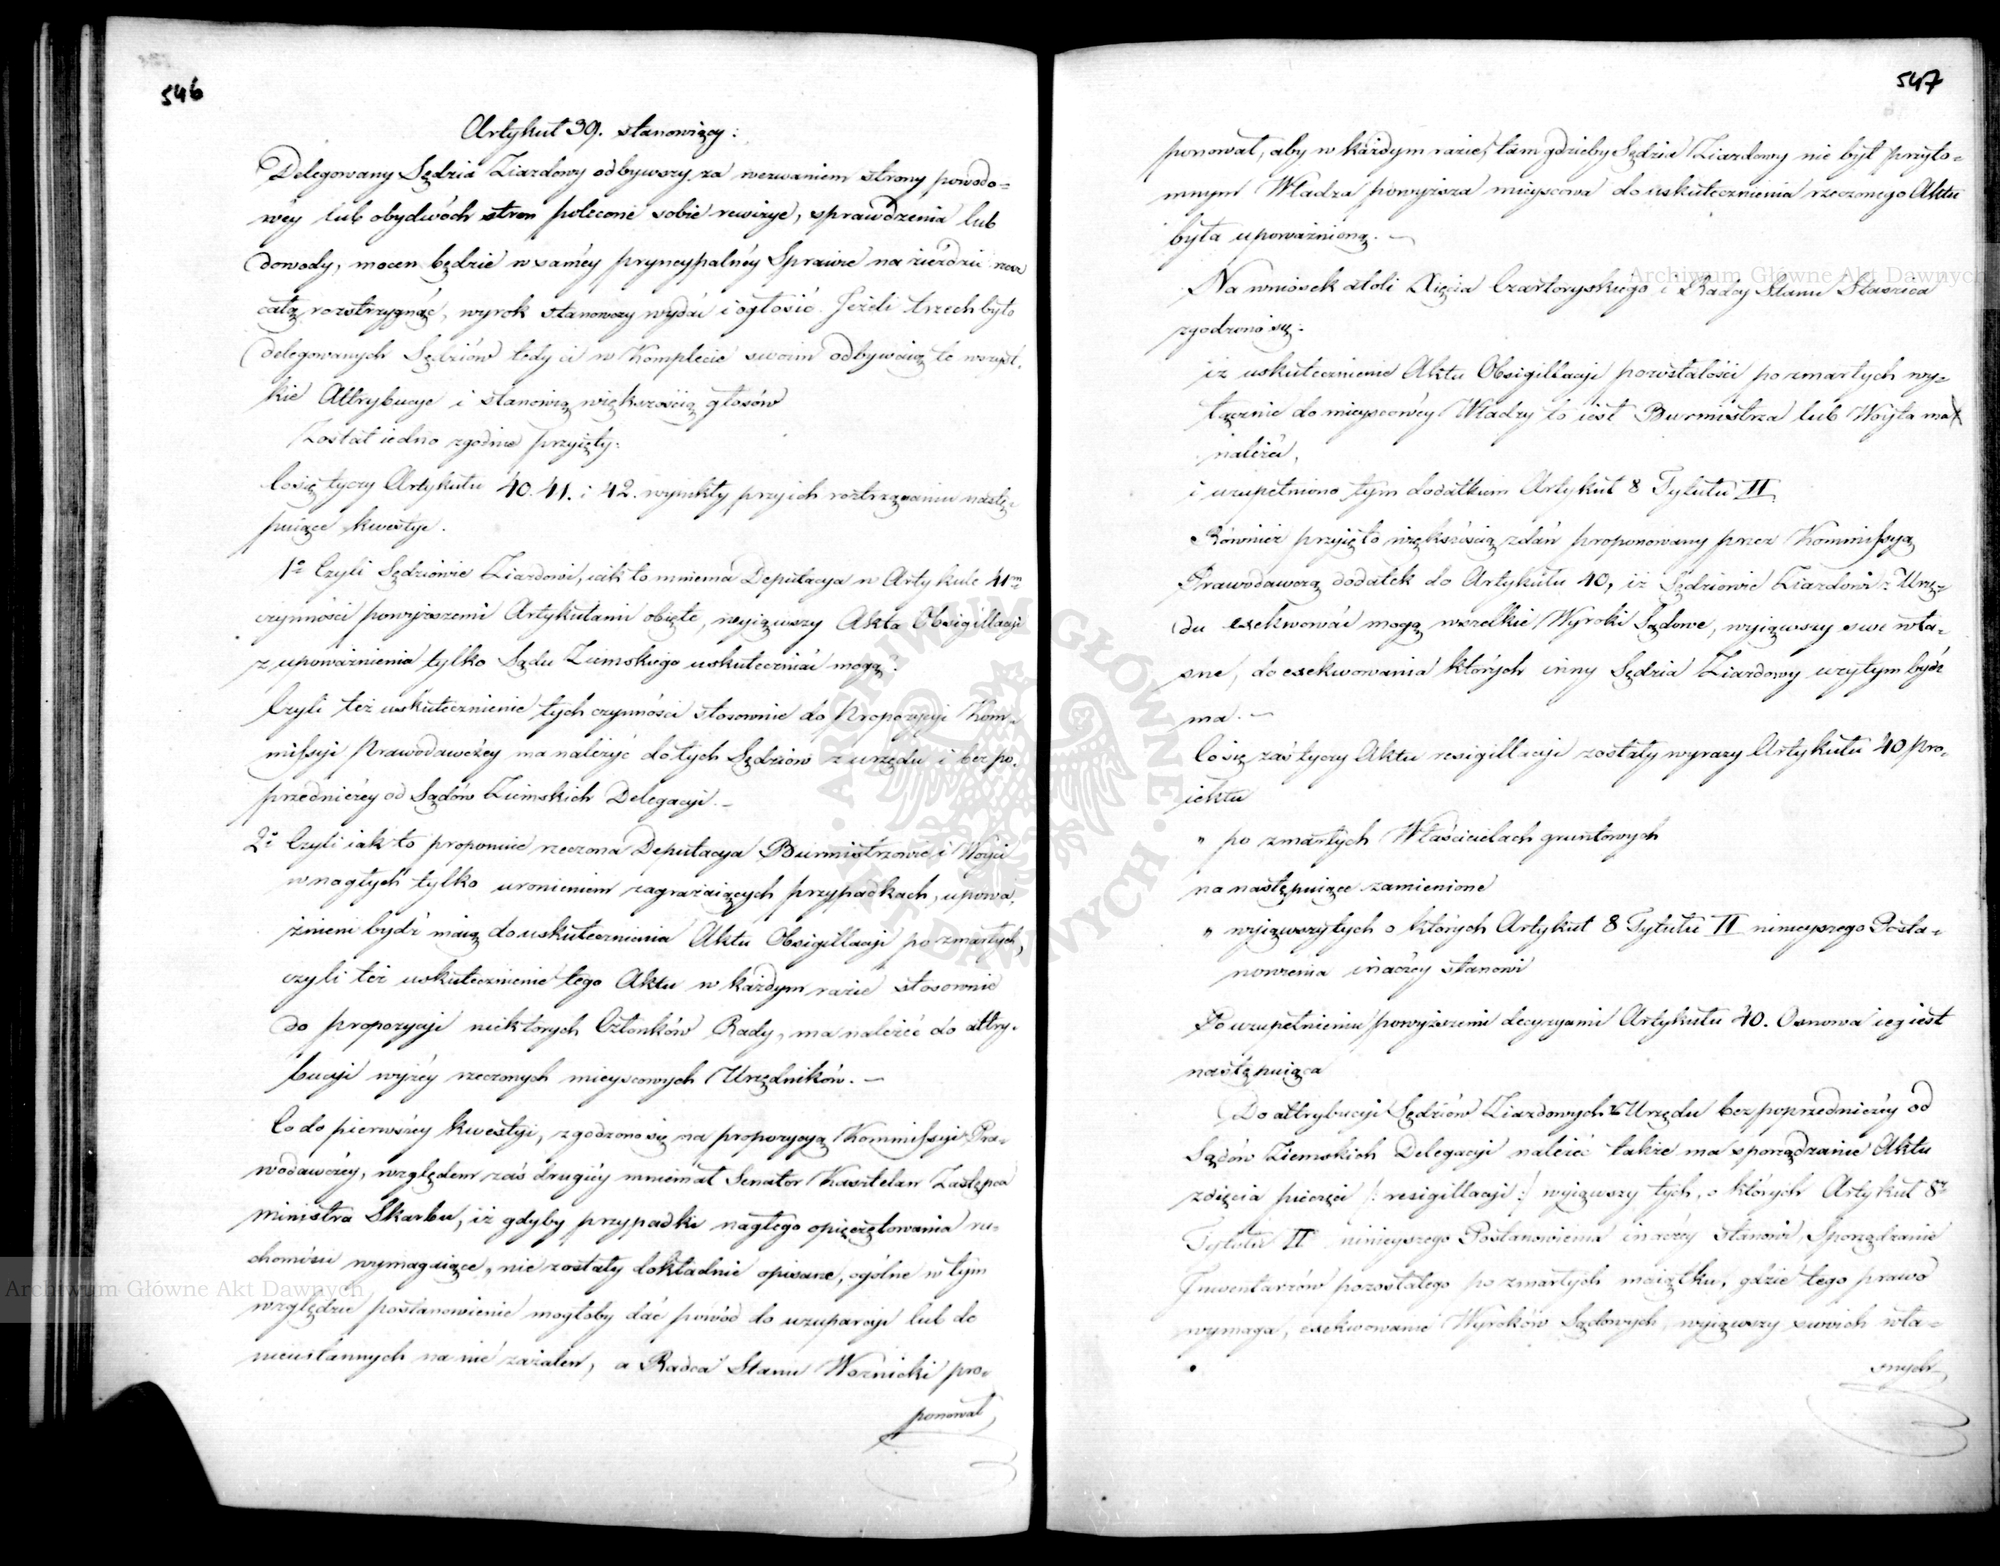 546
Artykuł 39. stanowiący:
Delegowany Sędzia Ziazdowy odbywszy za wezwaniem strony powodo=
wéy lub obydwóch stron polecone sobie rewizye, sprawdzenia lub
dowody, mocen będzie w saméy pryncypalnéy Sprawie na zieździe rzecz
całą rozstrzygnąć, wyrok stanowczy wydać i ogłosić. Jeżeli trzech było
delegowanych Sędziów tedy ci w Komplecie swoim odbywaią te wszyst=
kie Attrybucye i stanowią większością głosów
Został iedno zgodnie przyięty:
Co się tyczy Artykułu 40. 41. i 42. wynikły przy ich roztrząsaniu nastę=
puiące kwestye.
1o Czyli Sędziowie Ziazdowi, iak to mniema Deputacya w Artykule 41m
czynności powyższemi Artykułami obięte, wyiąwszy Akta Obsigillacyi
z upoważnienia tylko Sądu Ziemskiego uskuteczniać mogą?
Czyli też uskutecznienie tych czynności stosownie do Propozycyi Kom=
missyi Prawodawczéy ma należyć do tych Sędziów z urzędu i bez po=
przedniczéy od Sądów Ziemskich Delegacyi. –
2o Czyli iak to proponuie rzeczona Deputacya Burmistrzowie i Woyci
w nagłych tylko uronieniem zagrażaiących przypadkach, upowa=
żnieni bydź maią do uskutecznienia Aktu Obsigillacyi po zmarłych,
czyli też uskutecznienie tego Aktu w każdym razie stosownie
do propozycyi niektorych Członków Rady, ma należeć do attry=
bucyi wyżéy rzeczonych mieyscowych Urzędników. –
Co do pierwszéy kwestyi, zgodzono się na propozycyą Kommissyi Pra=
wodawczéy, względem zaś drugiéy mniemał Senator Kasztelan Zastępca
ministra Skarbu, iż gdyby przypadki nagłego opieczętowania ru=
chomości wymagaiące, nie zostały dokładnie opisane, ogólne w tym
względzie postanowienie mogłoby dać powód do uzurpacyi lub do
nieustannych na nié zażaleń, a Radca Stanu Woźnicki pro=
ponował
547
ponował, aby w każdym razie, tam gdzieby Sędzia Ziazdowy nie był przyto=
mnym Władza powyższa mieyscowa do uskutecznienia rzeczonego Aktu
była upoważnioną. –
Na wniosek atoli Xięcia Czartoryskiego i Radcy Stanu Staszica
zgodzono się:
iż uskutecznienie Aktu Obsigillacyi pozostałości po zmarłych wy=
łącznie do mieyscowéy Władzy to iest Burmistrza lub Woyta ma
należeć,
i uzupełniono tym dodatkiem Artykuł 8 Tytułu II
Również przyięto większością zdań proponowany przez Kommissyą
Prawodawczą dodatek do Artykułu 40, iż Sędziowie Ziazdowi z Urzę=
du exekwować mogą wszelkie Wyroki Sądowe, wyiąwszy swe wła=
sne, do exekwowania których inny Sędzia Ziazdowy użytym bydź
ma. –
Co się zaś tyczy Aktu resigillacyi zostały wyrazy Artykułu 40 Pro=
iektu
„ po zmarłych Właścicielach gruntowych
na następuiące zamienione
„ wyiąwszy tych o których Artykuł 8 Tytułu II ninieyszego Posta=
nowienia inaczéy stanowi
Po uzupełnieniu powyższemi decyzyami Artykułu 40. Osnowa iego iest
następuiąca
Do attrybucyi Sędziów Ziazdowych z Urzędu bez poprzedniczéy od
Sądów Ziemskich Delegacyi należeć także ma sporządzanie Aktu
zdięcia pieczęci /: resigillacyi :/ wyiąwszy tych, o których Artykuł 8y
Tytułu II ninieyszego Postanowienia inaczéy stanowi, Sporządzanie
Inwentarzów pozostałego po zmarłych maiątku, gdzie tego prawo
wymaga, exekwowanie Wyroków Sądowych, wyiąwszy swoich wła=
snych
Archiwum Główne Akt Dawnych
Archiwum Główne Akt Dawnych
ARCHIWUM GŁÓWNE AKT DAWNYCH